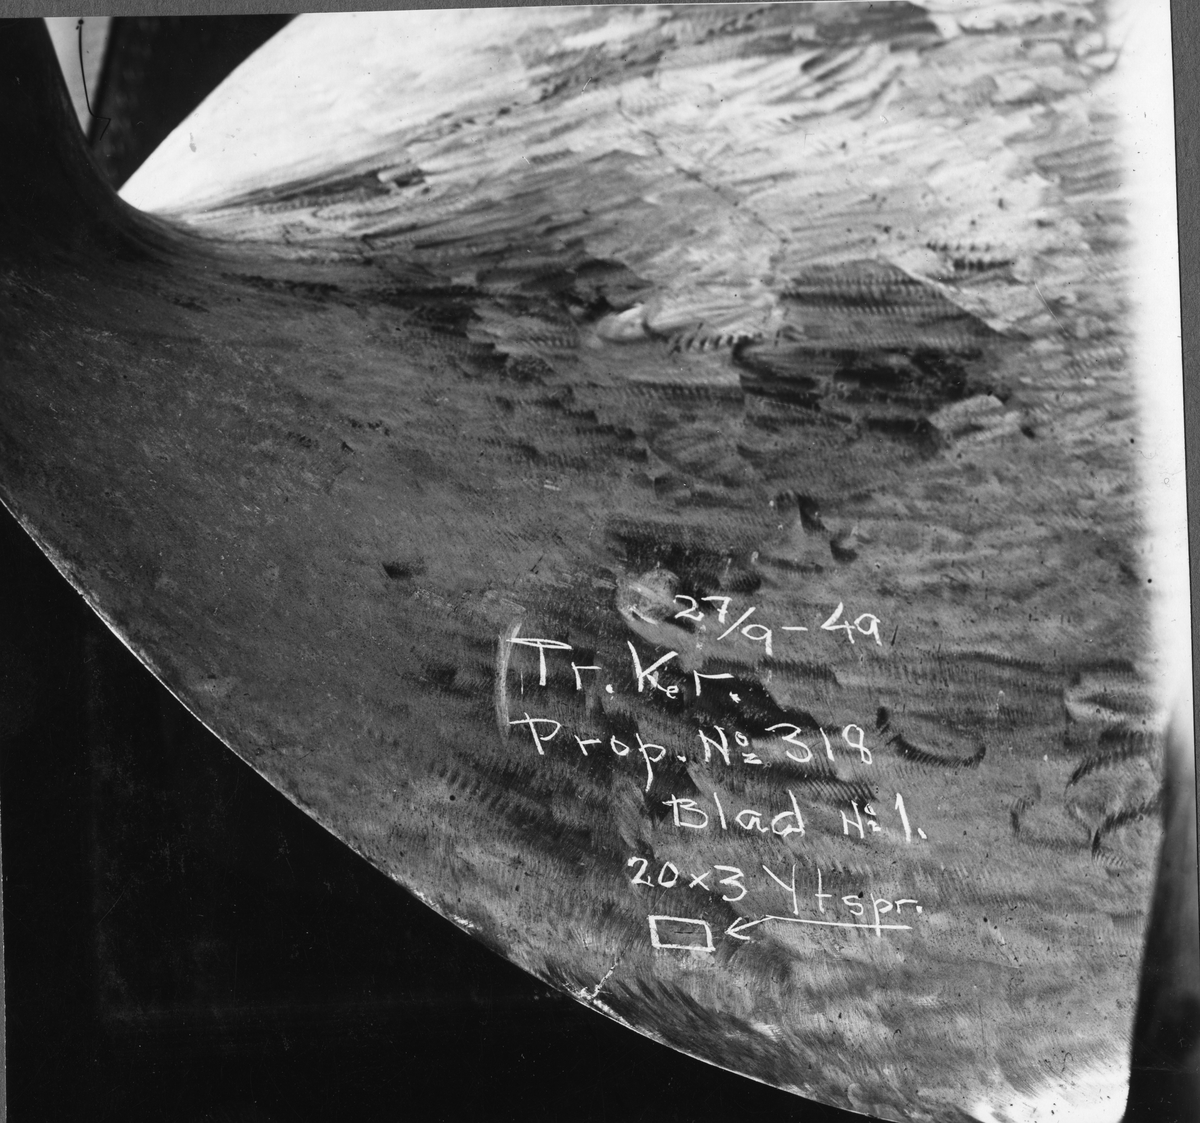 27/9-49
Tr. Ker.
Prop. Nº 318
Blad Nº 1.
20×3 Ytspr.